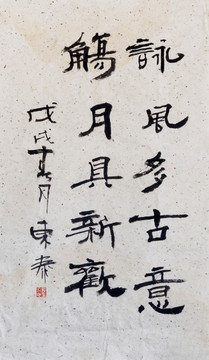 詠風多古意
觴月具新歡
戊戌十月東泰